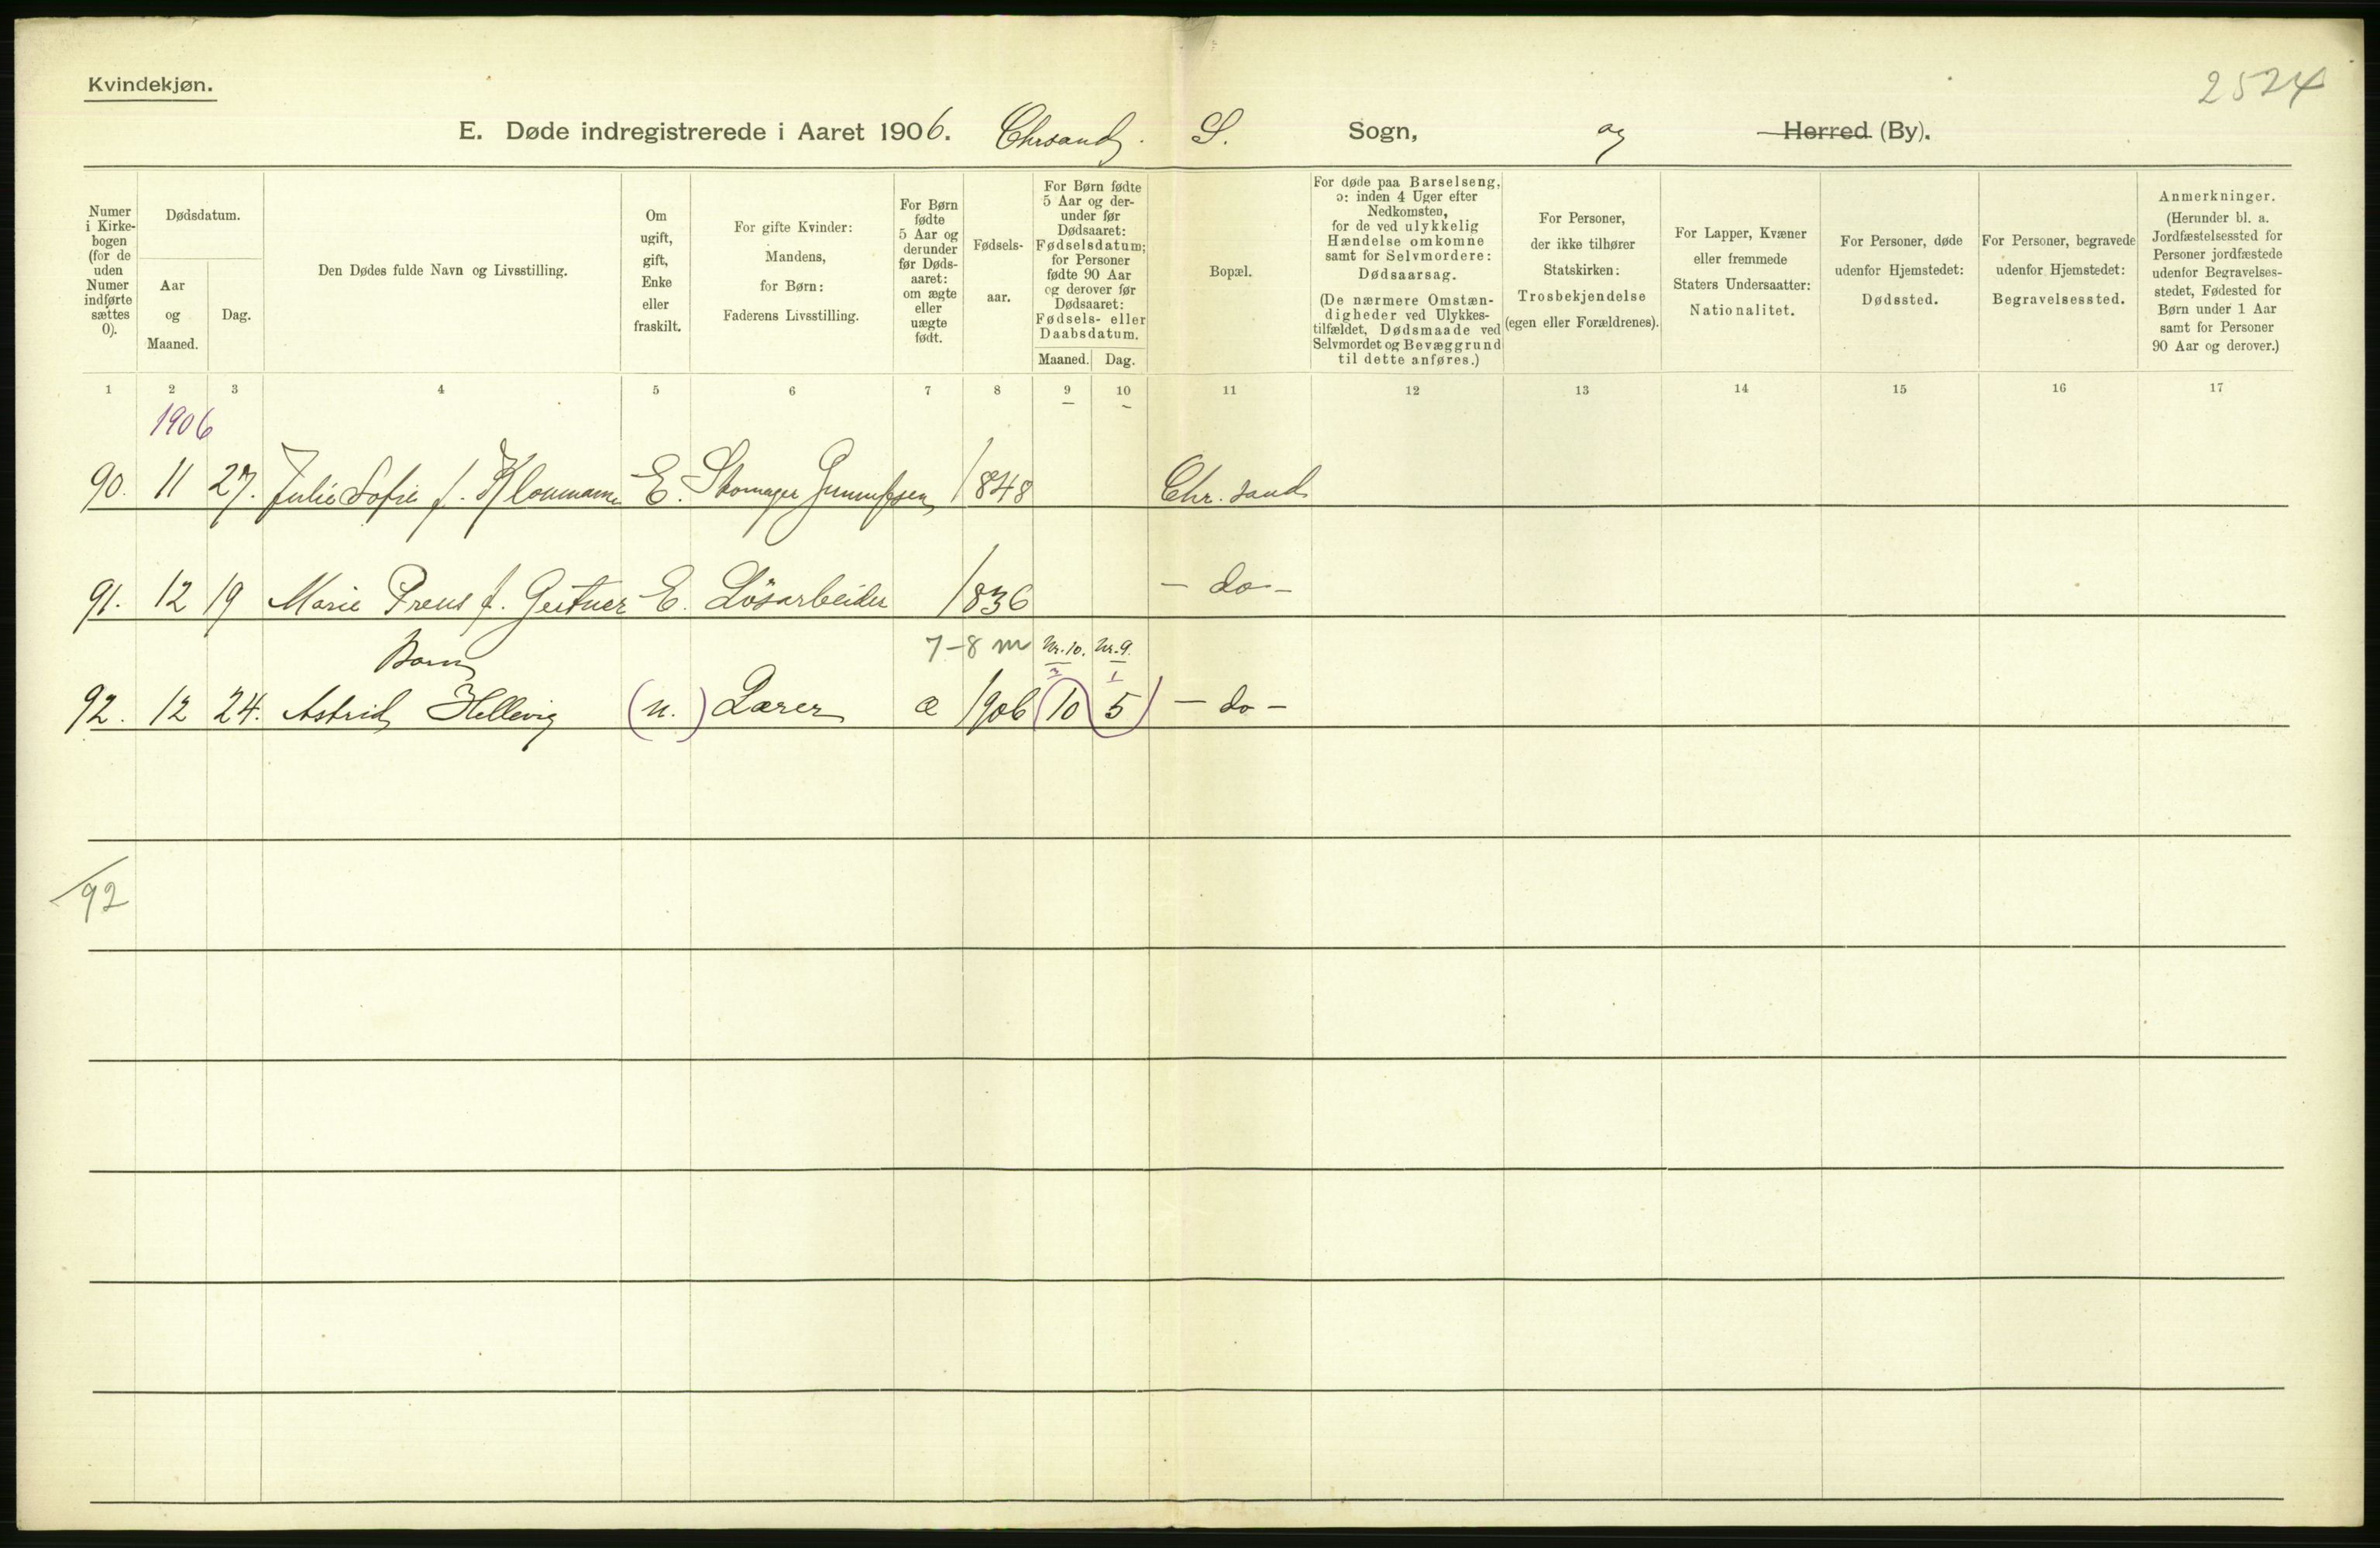 Kvindekjøn.
2524
E. Døde indregistrerede i Aaret 1906. Chrsands. S. Sogn, og Herred (By).
Numer i Kirkebogen (for de uden Numer indførte sættes 0).
Dødsdatum.
Aar og Maaned.
Dag.
Den Dødes fulde Navn og Livsstilling.
Om ugift, gift, Enke eller fraskilt.
For gifte Kvinder: Mandens, for Børn: Faderens Livsstilling.
For Børn fødte 5 Aar og derunder før Dødsaaret: om ægte eller uægte født.
Fødselsaar.
For Børn fødte 5 Aar og derunder før Dødsaaret: Fødselsdatum; for Personer fødte 90 Aar og derover før Dødsaaret: Fødsels- eller Daabsdatum.
Maaned. Dag.
Bopæl.
For døde paa Barselseng, ɔ: inden 4 Uger efter Nedkomsten, for de ved ulykkelig Hændelse omkomne samt for Selvmordere: Dødsaarsag.
(De nærmere Omstændigheder ved Ulykkestilfældet, Dødsmaade ved Selvmordet og Bevæggrund til dette anføres.)
For Personer, der ikke tilhører Statskirken: Trosbekjendelse (egen eller Forældrenes).
For Lapper, Kvæner eller fremmede Staters Undersaatter: Nationalitet.
For Personer, døde udenfor Hjemstedet: Dødssted.
For Personer, begravede udenfor Hjemstedet: Begravelsessted.
Anmerkninger.
(Herunder bl. a. Jordfæstelsessted for Personer jordfæstede udenfor Begravelsesstedet, Fødested for Børn under 1 Aar samt for Personer 90 Aar og derover.)
1 2 3 4 5 6 7 8 9 10 11 12 13 14 15 16 17
1906
90. 11 27. Julie Sofie f. E. Skomager 1848 Chr.sand
91. 12 19 Marie Preus f. Geitner E. Lösarbeider 1836 - do -
Barn 7-8 m Nr.10. Nr.9.
92. 12 24. Astrid Hellevig (u.) Lærer æ 1906 (10 5) - do -
92